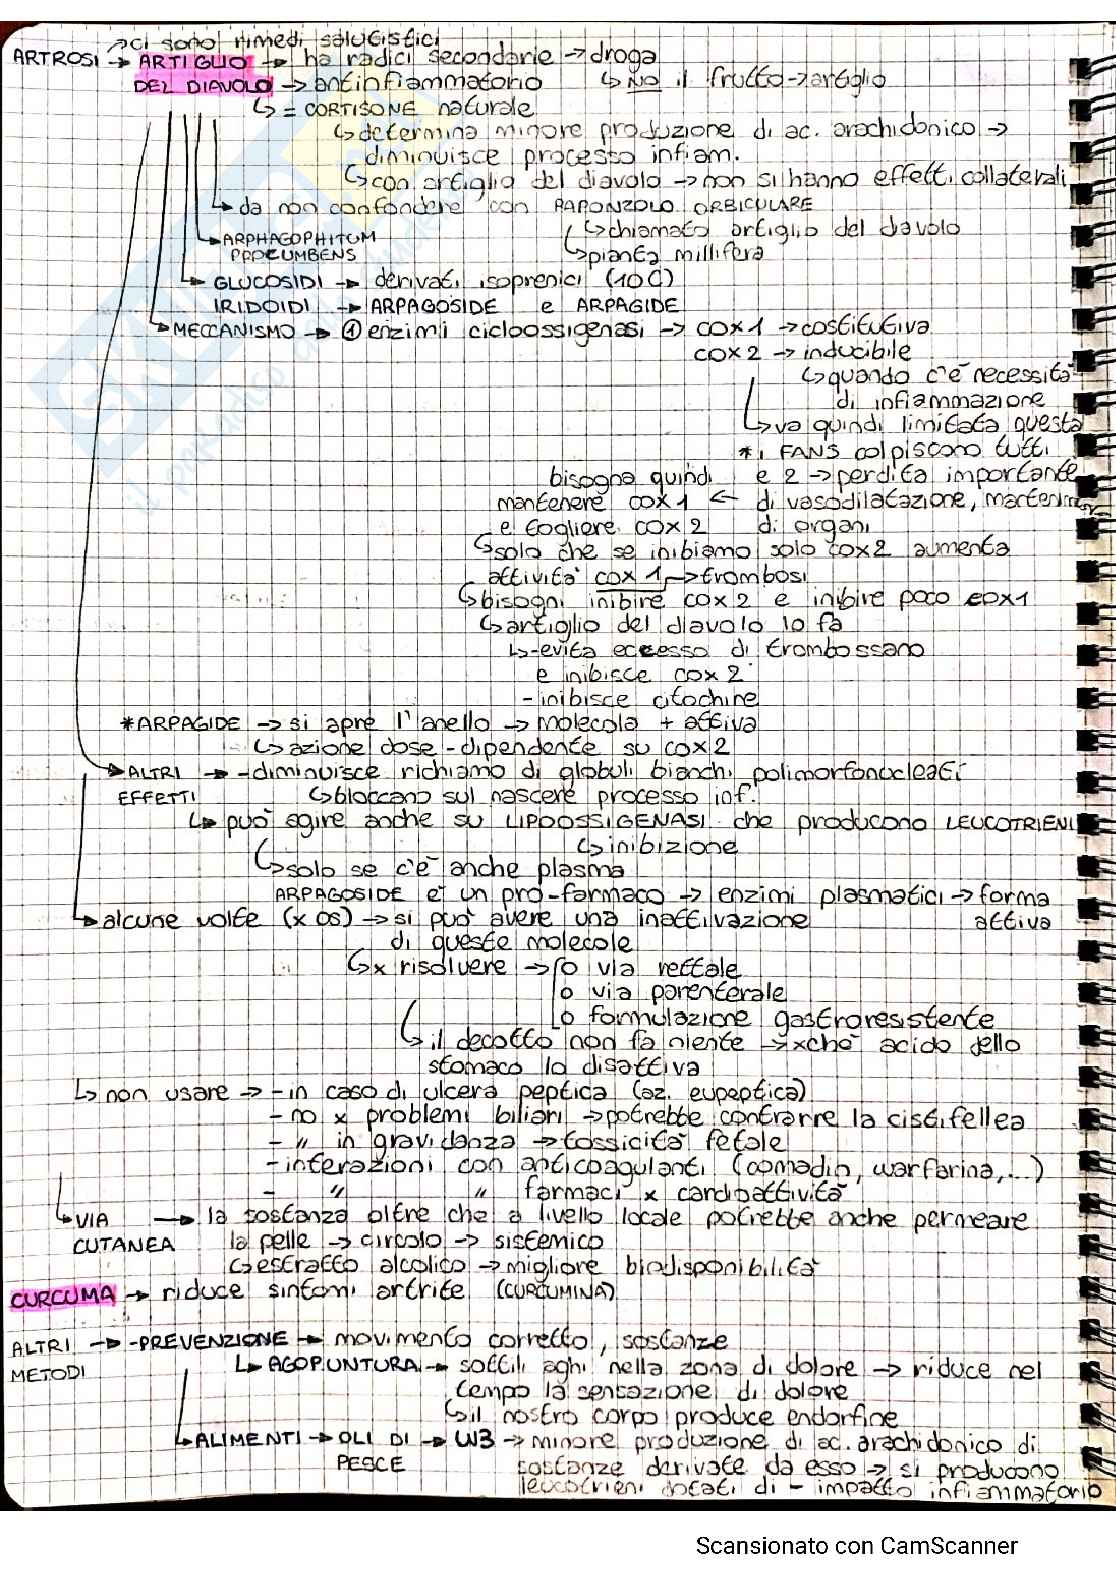 ↗ci sono rimedi salutistici
ARTROSI → ARTIGLIO → ha radici secondarie → droga
DEL DIAVOLO → antinfiammatorio ↳ NO il frutto → artiglio
↳ = CORTISONE naturale
↳ determina minore produzione di ac. arachidonico →
diminuisce processo infiam.
↳ con artiglio del diavolo → non si hanno effetti collaterali
↳ da non confondere con RAPONZOLO ORBICULARE
↳ ARPHAGOPHITUM ↳ chiamato artiglio del diavolo
PROCUMBENS ↳ pianta millifera
↳ GLUCOSIDI → derivati isoprenici (10C)
IRIDOIDI → ARPAGOSIDE e ARPAGIDE
↳ MECCANISMO → ① enzimi cicloossigenasi → COX1 → costitutiva
COX2 → inducibile
↳ quando c'è necessità
di infiammazione
↳ va quindi limitata questa
* i FANS colpiscono tutti
bisogna quindi e 2 → perdita importante
mantenere COX1 ← di vasodilatazione,
e togliere COX2 di organi
↳ solo che se inibiamo solo COX2 aumenta
attività COX1 → trombosi
↳ bisogni inibire COX2 e inibire poco COX1
↳ artiglio del diavolo lo fa
↳ - evita eccesso di trombossano
e inibisce COX2
- inibisce citochine
* ARPAGIDE → si apre l'anello → molecola + attiva
↳ azione dose-dipendente su COX2
→ ALTRI → - diminuisce richiamo di globuli bianchi polimorfonucleati
EFFETTI ↳ bloccano sul nascere processo inf.
↳ può agire anche su LIPOOSSIGENASI che producono LEUCOTRIENI
↳ inibizione
↳ solo se c'è anche plasma
ARPAGOSIDE è un pro-farmaco → enzimi plasmatici → forma
↳ alcune volte (x os) → si può avere una inattivazione attiva
di queste molecole
↳ x risolvere → o via rettale
o via parenterale
o formulazione gastroresistente
↳ il decotto non fa niente → xchè acido dello
stomaco lo disattiva
↳ non usare → - in caso di ulcera peptica (az. eupeptica)
- no x problemi biliari → potrebbe contrarre la cistifellea
- " in gravidanza → tossicità fetale
- interazioni con anticoagulanti (comadin, warfarina,...)
- " " farmaci x cardioattività
↳ VIA → la sostanza oltre che a livello locale potrebbe anche permeare
CUTANEA la pelle → circolo → sistemico
↳ estratto alcolico → migliore biodisponibilità
CURCUMA → riduce sintomi artrite (CURCUMINA)
ALTRI → - PREVENZIONE → movimento corretto, sostanze
METODI ↳ AGOPUNTURA → sottili aghi nella zona di dolore → riduce nel
tempo la sensazione di dolore
↳ il nostro corpo produce endorfine
↳ ALIMENTI → OLI DI → W3 → minore produzione di ac. arachidonico di
PESCE sostanze derivate da esso → si producono
leucotrieni dotati di - impatto infiammatorio
Scansionato con CamScanner